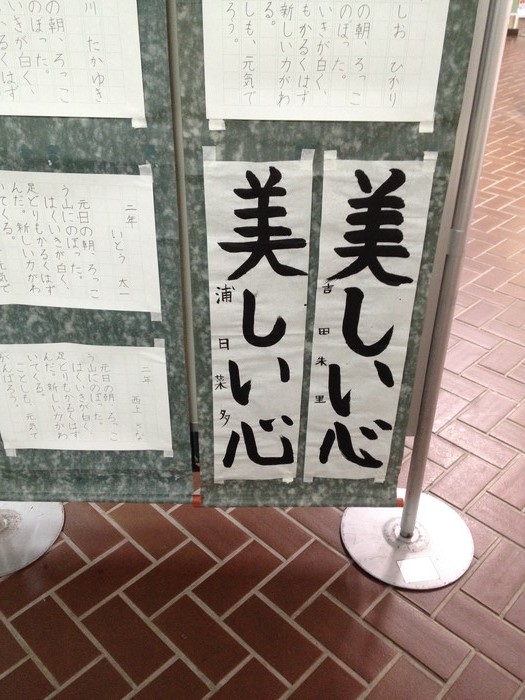 しお ひかり
の朝、ろっこ
のぼった。
いきが白く、
もかるくはず
新しい力がわ
しも、元気で
ろう。
川 たかゆき
の朝、ろっこ
のぼった。
いきが白く、
るくはず
美しい心
吉田朱里
美しい心
浦日菜多
二年 いとう 太一
元日の朝 ろっこ
う山にのぼった。
はくいきが白く、
足どりもかるくは
ん
だ。新しい力がわ
いてくる。
元気で
二年 西上
元日の朝、ろっこ
う山にのぼった。
はくいきが白く
足どりもかるくは
んだ。新しい力がわ
いてくる。
ことしも、元気で
がんばろう。